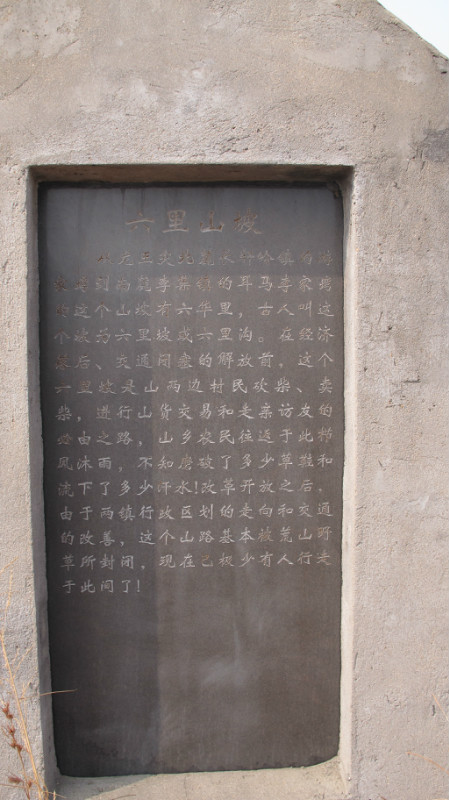 六里山坡
李集镇的耳马李家塆
的这个山坡有六华里,古人叫这
个坡为六里坡或六里沟。在经济
落后、交通闭塞的解放前,这个
里坡是山两边村民砍柴、卖
柴,进行山货交易和走亲访友的
必由之路,山乡农民往返于此栉
风沐雨,不知磨破了多少草鞋和
流下了多少汗水!改革开放之后,
由于两镇行政区划的走向和交通
的改善,这个山路基本被荒山野
草所封闭,现在已极少有人行走
于此间了!